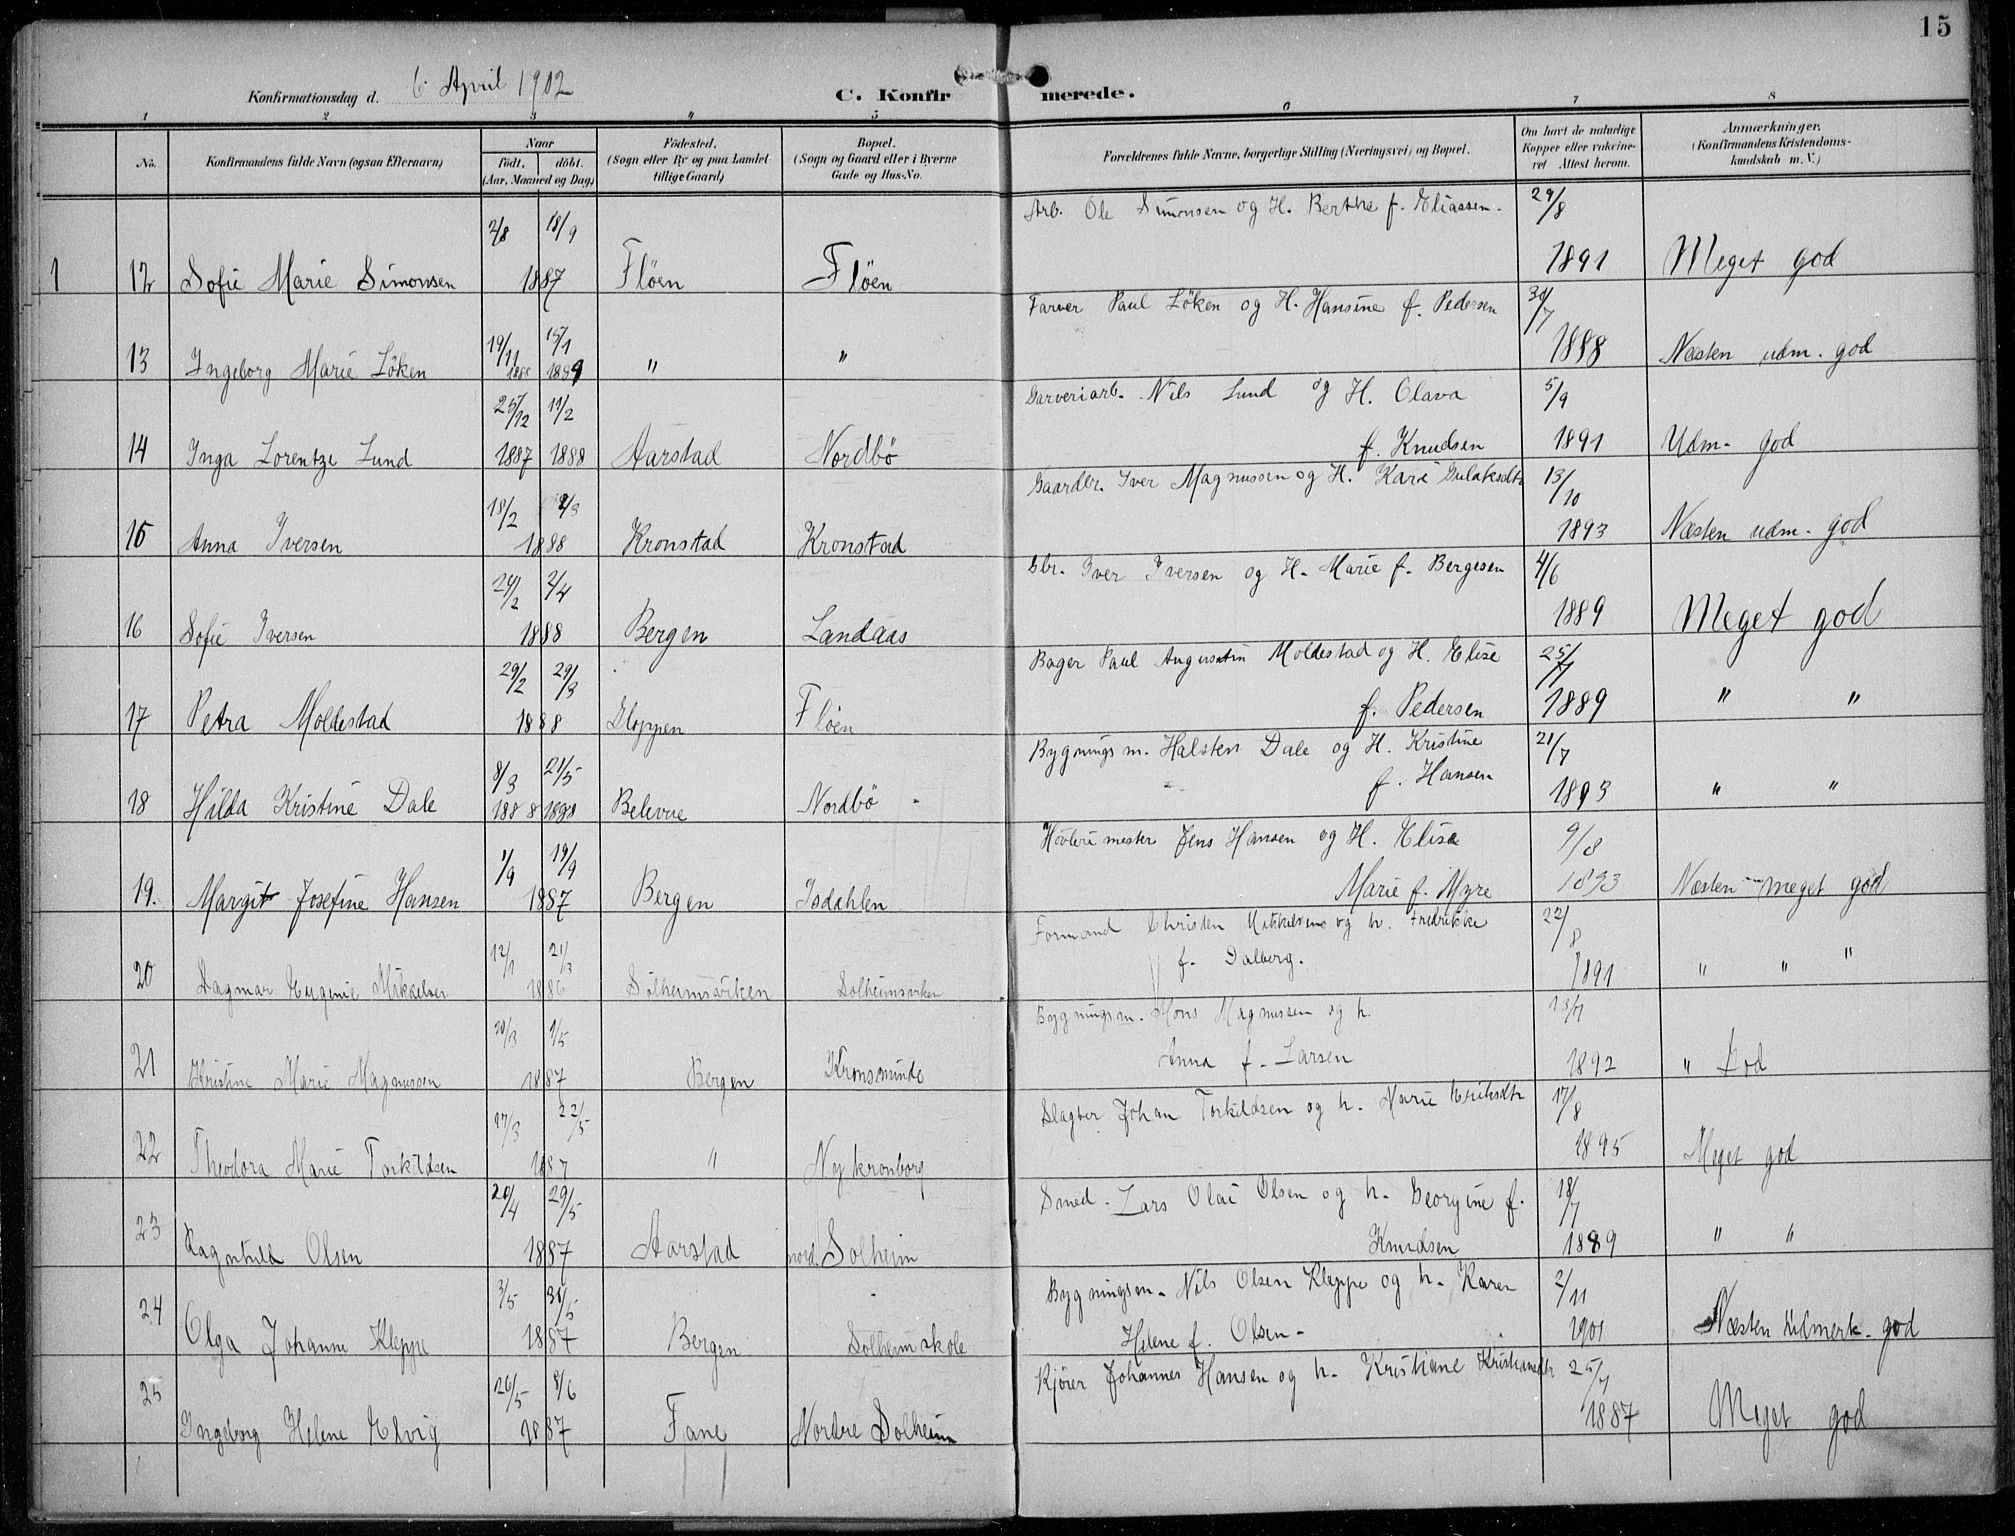 15
Konfirmationsdag d. 6. April 1902
C. Konfirmerede.
1 2 3 4 5 6 7 8
No. Konfirmandens fulde Navn (ogsaa Efternavn) Naar födt. döbt. (Aar, Maaned og Dag) Födested. (Sogn eller By og paa Landet tillige Gaard) Bopæl. (Sogn og Gaard eller i Byerne Gade og Hus-No. Forældrenes fulde Navne, borgerlige Stilling (Næringsvei) og Bopæl. Om havt de naturlige Kopper eller vakcineret Attest herom. Anmærkninger. (Konfirmandens Kristendomskundskab m. V.)
2/8 18/9 Arb. Ole Simonsen og H. Berthe f. Eliassen. 29/8
1 12 Sofie Marie Simonsen 1887 Flöen Flöen 1891 Meget god
19/11 15/1 Farver Paul Löken og H. Hansine f. Pedersen 30/7
13 Ingeborg Marie Löken 1888 1889 " " 1888 Næsten udm. god
25/12 11/2 Garveriarb. Nils Lund og H. Olava 5/9
14 Inga Lorentze Lund 1887 1888 Aarstad Nordbö f. Knudsen 1891 Udm. god
18/2 2/3 Gaardbr. Iver Magnussen og H. Kari Gulaksdtr 13/10
15 Anna Iversen 1888 Kronstad Kronstad 1893 Næsten udm. god
24/2 2/4 Gbr. Iver Iversen og H. Marie f. Bergesen 4/6
16 Sofie Iversen 1888 Bergen Landaas 1889 Meget god
29/2 29/3 Bager Paul Moldestad og H. Elise 25/7
17 Petra Moldestad 1888 Gloppen Flöen f. Pedersen 1889 " "
8/3 21/5 Bygningsm. Halsten Dale og H. Kristine 21/7
18 Hilda Kristine Dale 1888 1888 Belevue Nordbö f. Hansen 1893 " "
1/9 19/9 Hövlerimester Jens Hansen og H. Elise 9/8
19. Margit Josefine Hansen 1887 Bergen Isdahlen Marie f. Myre 1893 Næsten meget god
12/1 21/3 Formand Christen Mikkelsen og h. Fredrikke 22/8
20 Dagmar Eugenie Mikkelsen 1886 Solheimsviken Solheimsviken f. Dalberg. 1891 " " "
20/3 1/5 Bygningsm. Mons Magnussen og h. 13/7
21 Kristine Marie Magnussen 1887 Bergen Kronsminde Anna f. Larsen 1892 " God
27/3 22/5 Slagter Johan Torkildsen og h. Marie Eriksdtr 17/8
22 Theodora Marie Torkildsen 1887 " Ny kronborg 1895 Meget god
20/4 29/5 Smed. Lars Olai Olsen og h. Georgine f. 18/7
23 Ragnhild Olsen 1887 Aarstad nord. Solheim Knudsen 1889 " "
3/5 31/5 Bygningsm. Nils Olsen Kleppe og h. Karen 2/11
24 Olga Johanne Kleppe 1887 Bergen Solheim skole Helene f. Olsen 1901 Næsten Udmerk. god
26/5 8/6 Kjörer Johannes Hansen og h. Kristiane Kristiansdtr 25/7
25 Ingeborg Helene Elvig 1887 Fane Nordre Solheim 1887 Meget god